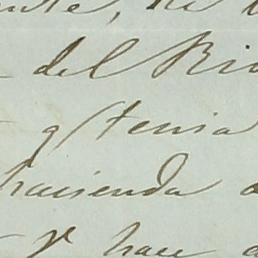 del Rio
q/ tenia
hacienda
y hace